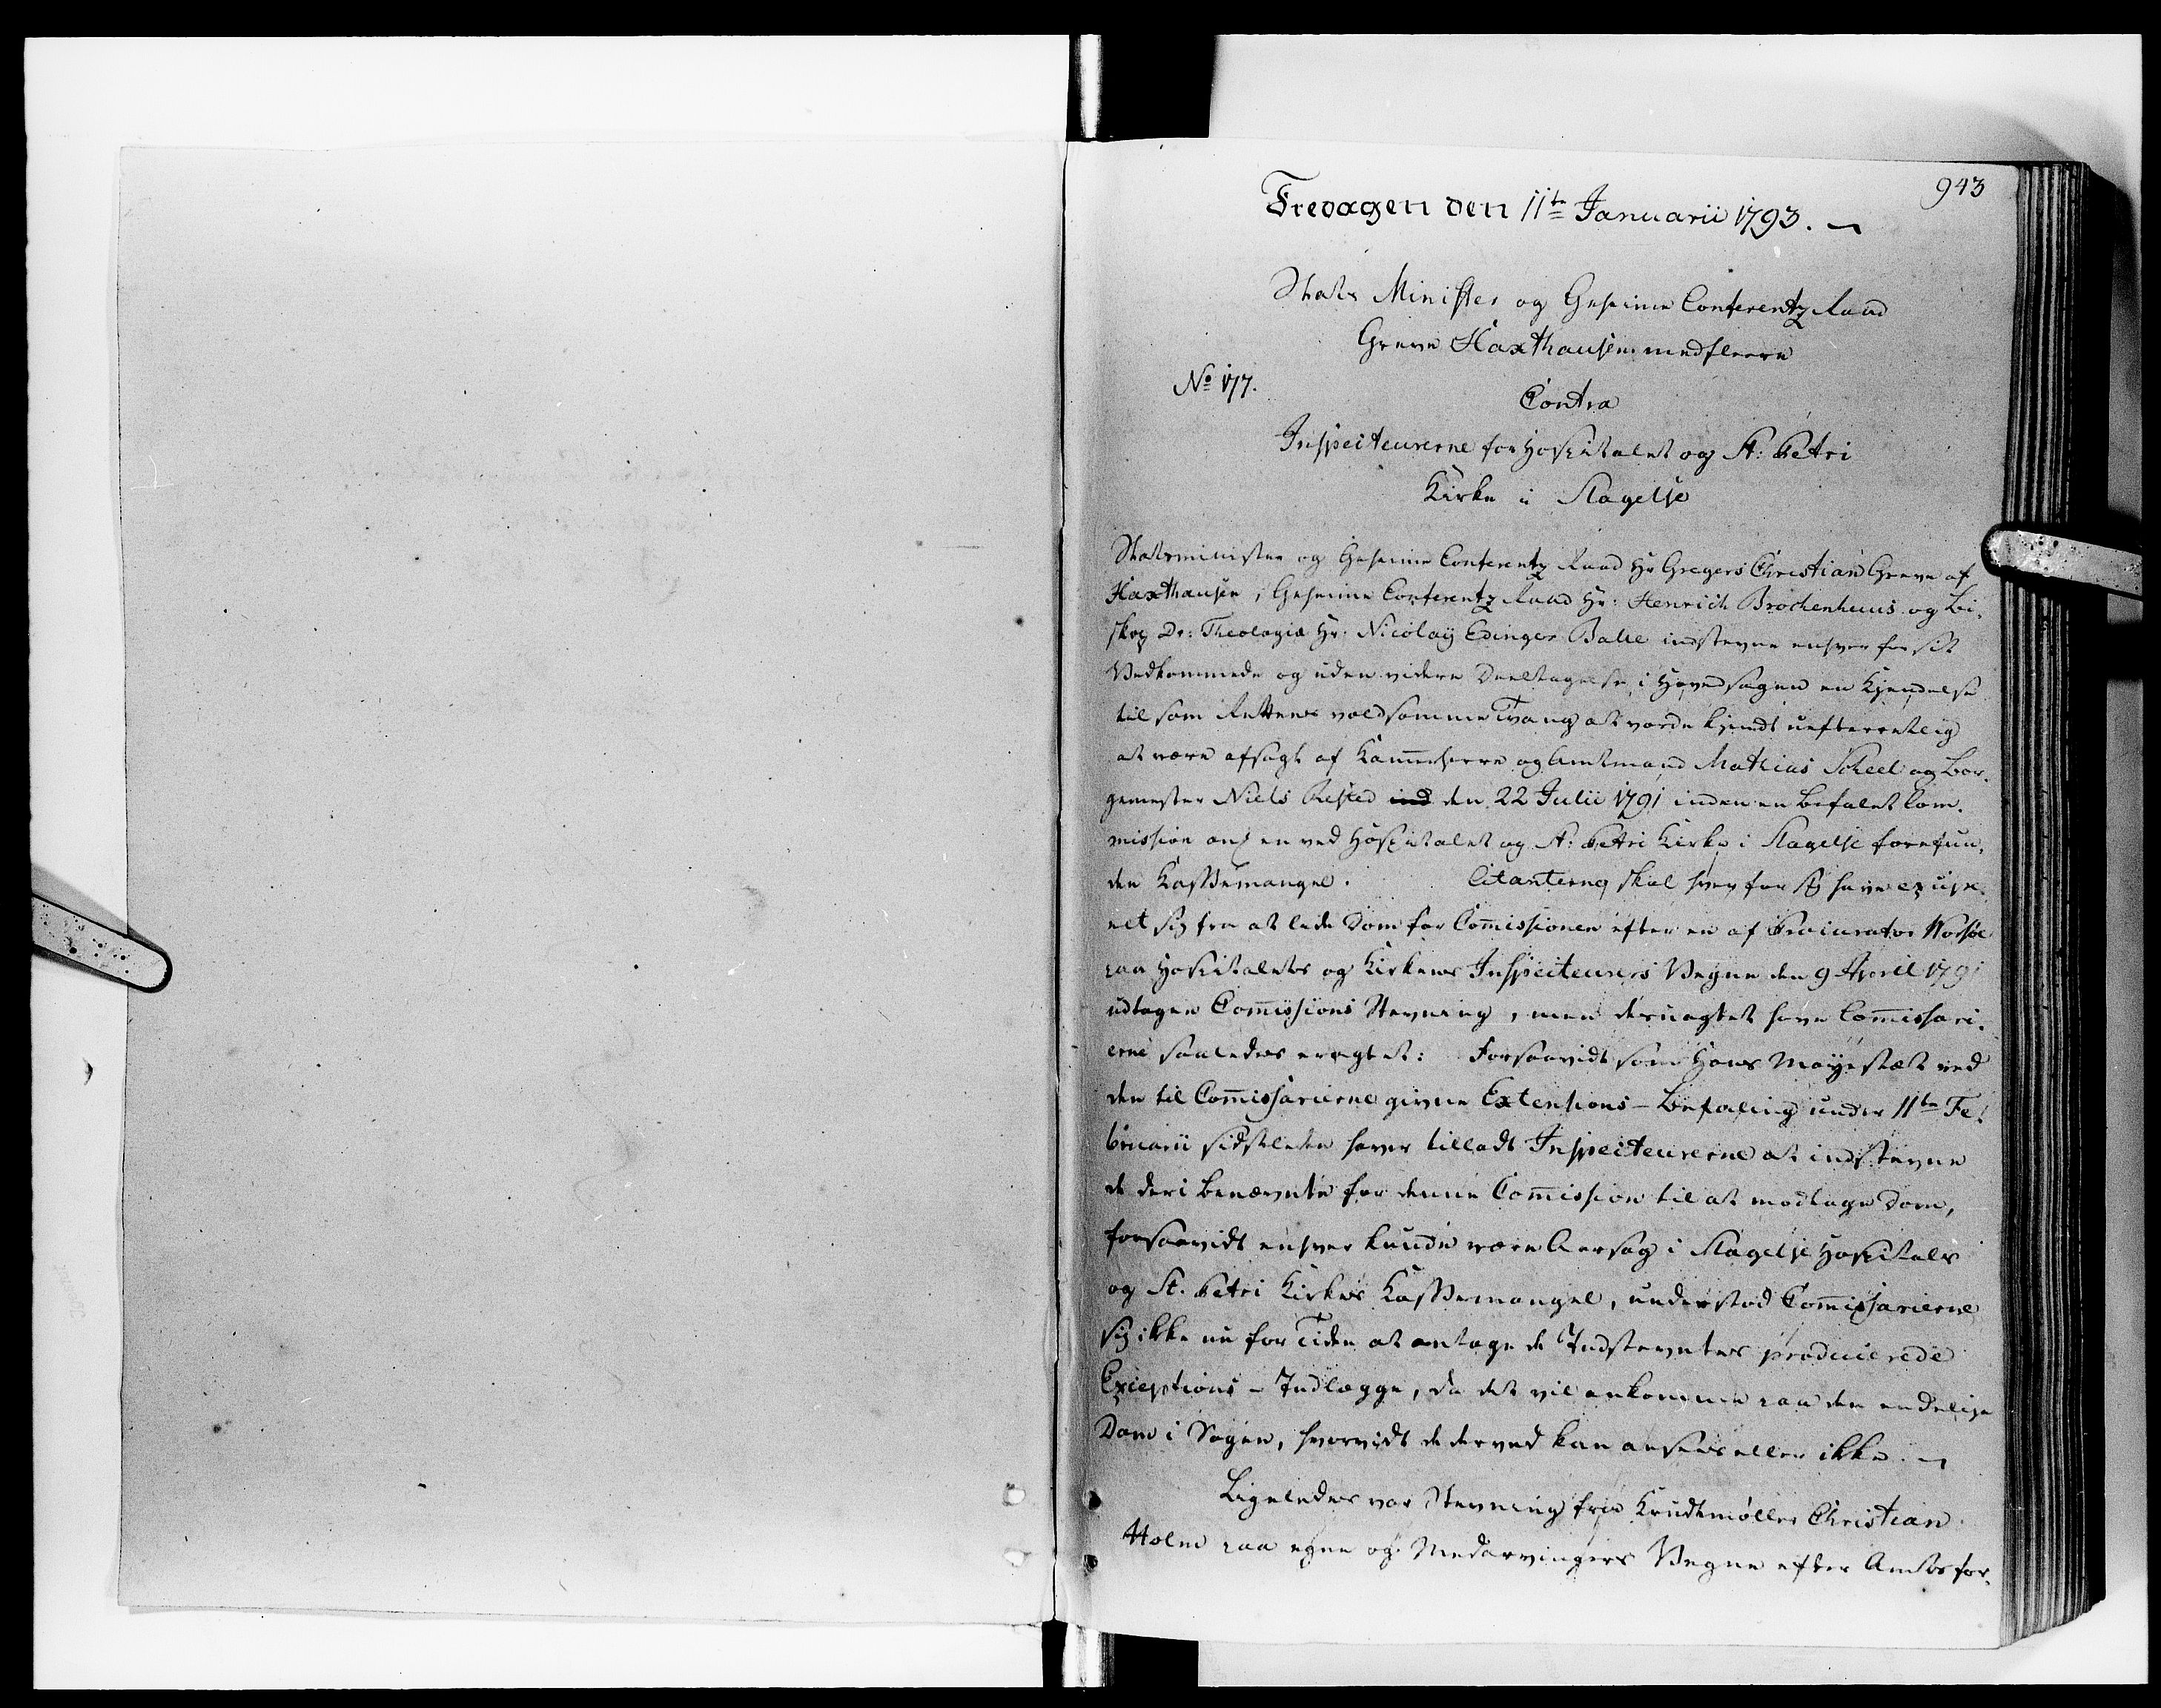 943
Fredagen den 11te Januarii 1793.
Stats Minister og Geheime Conferentz Raad
Greve Haxthausen med fleere
No 177.
Contra
Inspecteurerne for Hospitalet og St: Petri
Kirke i Slagelse
Statsminister og Geheime Conferentz Raad Hr Gregers Christian Greve af
Haxthausen, Geheime Conferentz Raad Hr: Henrich Brochenhuus og Bi-
skop Dr: Theologiæ Hr: Nicolaij Edinger Balle indstevne enhver for sit
Vedkommende og uden videre Deeltagelse i Hovedsagen en Kjendelse
til som Rettens voldsomme Tvang at vorde kjendt uefterretlig
at være afsagt af Kammerherre og Amtmand Mathias Scheel og Bor-
gemester Niels Rested ind den 22 Julii 1791 inden en befalet Com-
mission ang en ved Hospitalet og St: Petri Kirke i Slagelse forefun-
den Kassemangel. Citanterne skal hver for sig have exipe-
ret sig fra at lide Dom for Commissionen efter en af Procurator Worsøe
paa Hospitalets og Kirkens Inspecteurers Vegne den 9 April 1791
udtagen Commissions Stevning, men desuagtet have Commissari-
erne saaledes eragtet: Forsaavidt som Hans Mayestæt ved
den til Commissarierne givne Extensions-Befaling under 11te Fe-
bruarii sidstleden haver tilladt Inspecteurerne at indstevne
de deri benævnte for denne Commission til at modtage Dom,
forsaavidt enhver kunde være Aarsag i Slagelse Hospitals
og St. Petri Kirkes Kassemangel, understod Commissarierne
sig ikke nu for Tiden at antage de Indstevntes producerede
Exceptions-Indlægge, da det vil ankomme paa den endelige
Dom i Sagen, hvorvidt de derved kan ansees eller ikke.
Ligeledes var Stevning fra Krudtmøller Christian
Holm paa egne og Medarvingers Vegne efter Amtsfor-